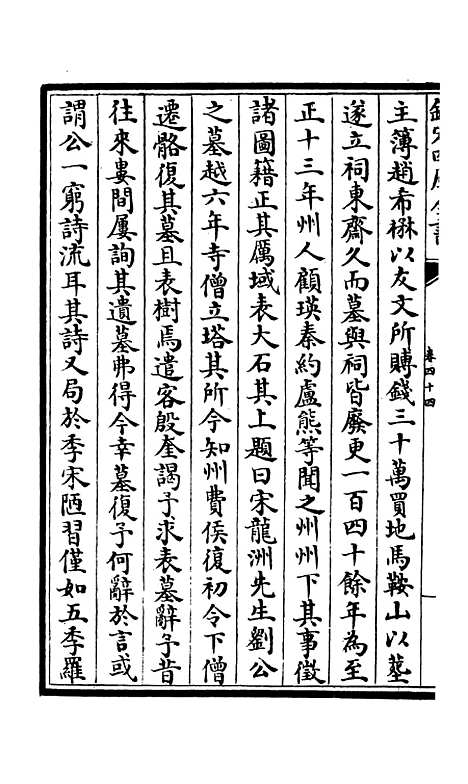 欽定四庫全書
卷四十四
主簿趙希楙以友文所賻錢三十萬買地馬鞍山以塟
遂立祠東齋久而墓與祠皆廢更一百四十餘年為至
正十三年州人顧瑛秦約盧熊等聞之州州下其事徵
諸圖籍正其厲域表大石其上題曰宋龍洲先生劉公
之墓越六年寺僧立塔其所今知州費侯復初令下僧
遷骼復其墓且表樹焉遣客殷奎謁予求表墓辭予昔
往來婁間屢詢其遺墓弗得今幸墓復予何辭於言或
謂公一窮詩流耳其詩又局於季宋陋習僅如五季羅